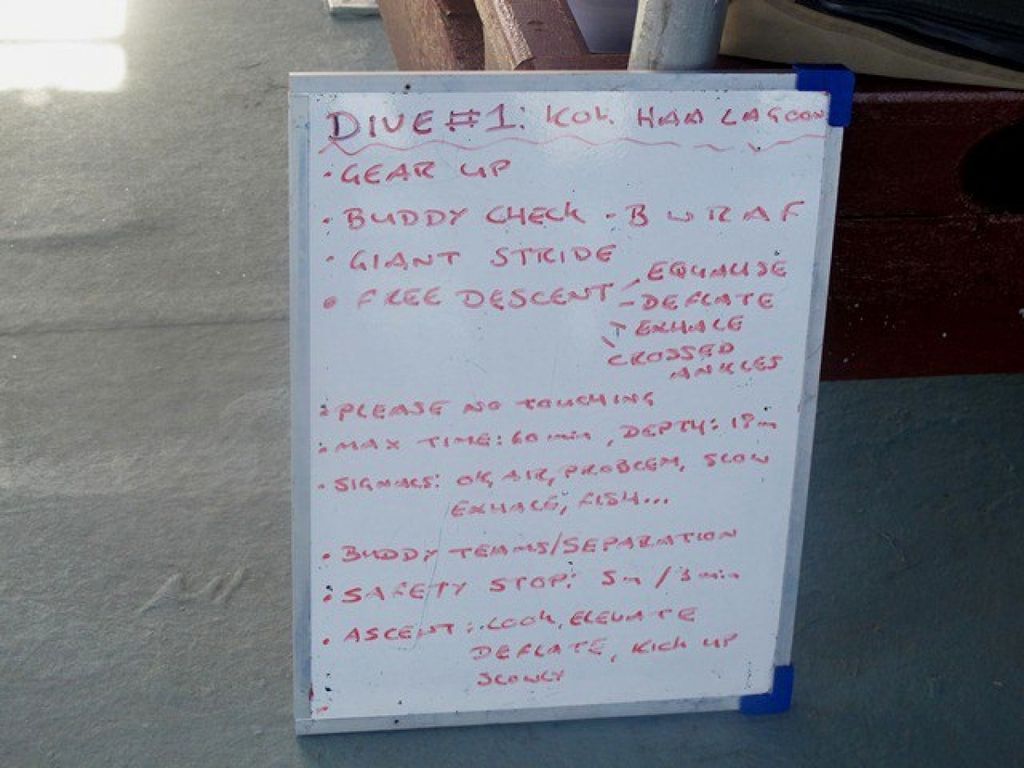 DIVE #1: KOH HAA LAGOON
· GEAR UP
· BUDDY CHECK - B W R A F
· GIANT STRIDE
· FREE DESCENT - EQUALISE
- DEFLATE
- EXHALE
- CROSSED
ANKLES
· PLEASE NO TOUCHING
· MAX TIME: 60 min, DEPTH: 18m
· SIGNALS: OK, AIR, PROBLEM, SLOW
EXHALE, FISH...
· BUDDY TEAMS/SEPARATION
· SAFETY STOP: 5m / 3min
· ASCENT: LOOK, ELEVATE
DEFLATE, KICK UP
SLOWLY